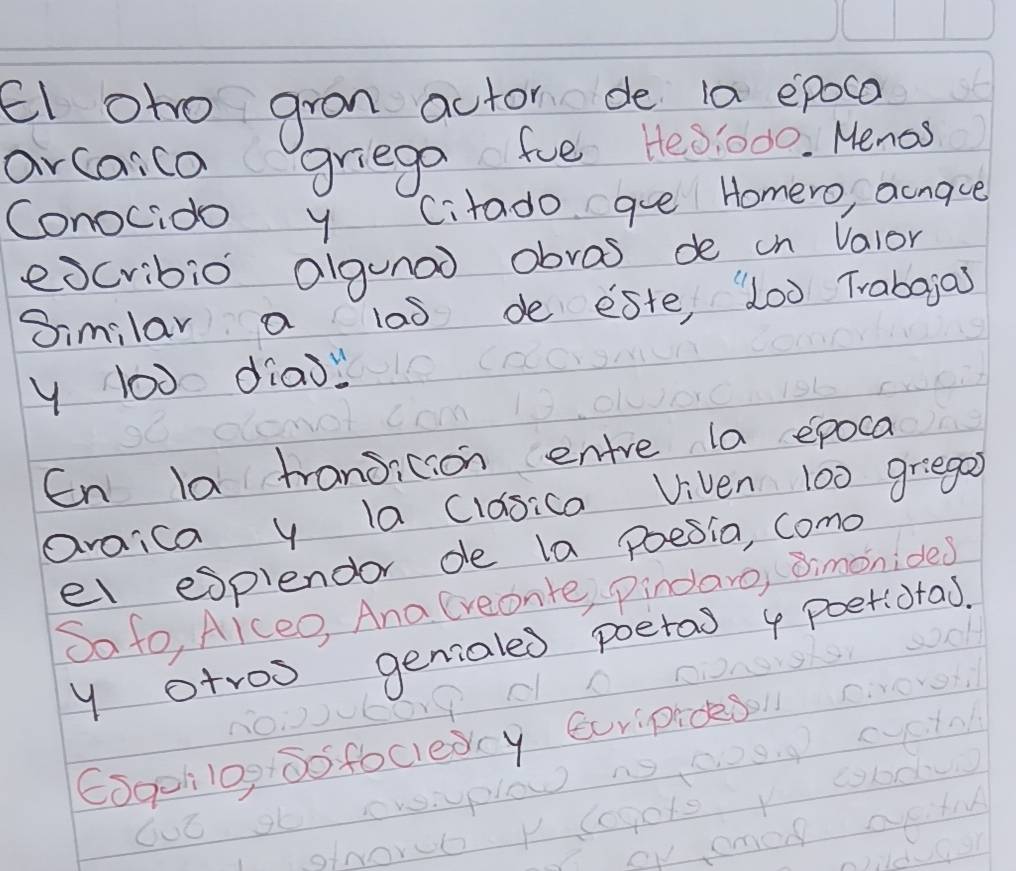 El otro gran actor de la época
arcaica griega fue Hesíodo. Menos
Conocido y Citado que Homero, aunque
escribió algunas obras de un Valor
Similar a las de éste, "Los Trabajas
y los días".
En la transición entre la época
araica y la Clásica Viven los griegos
el esplendor de la Poesía, Como
Safo, Alceo, Anacreonte, Pindaro, Simónides
y otros geniales poetas y poetistas.
Esquilo, Sófocles y Eurípides